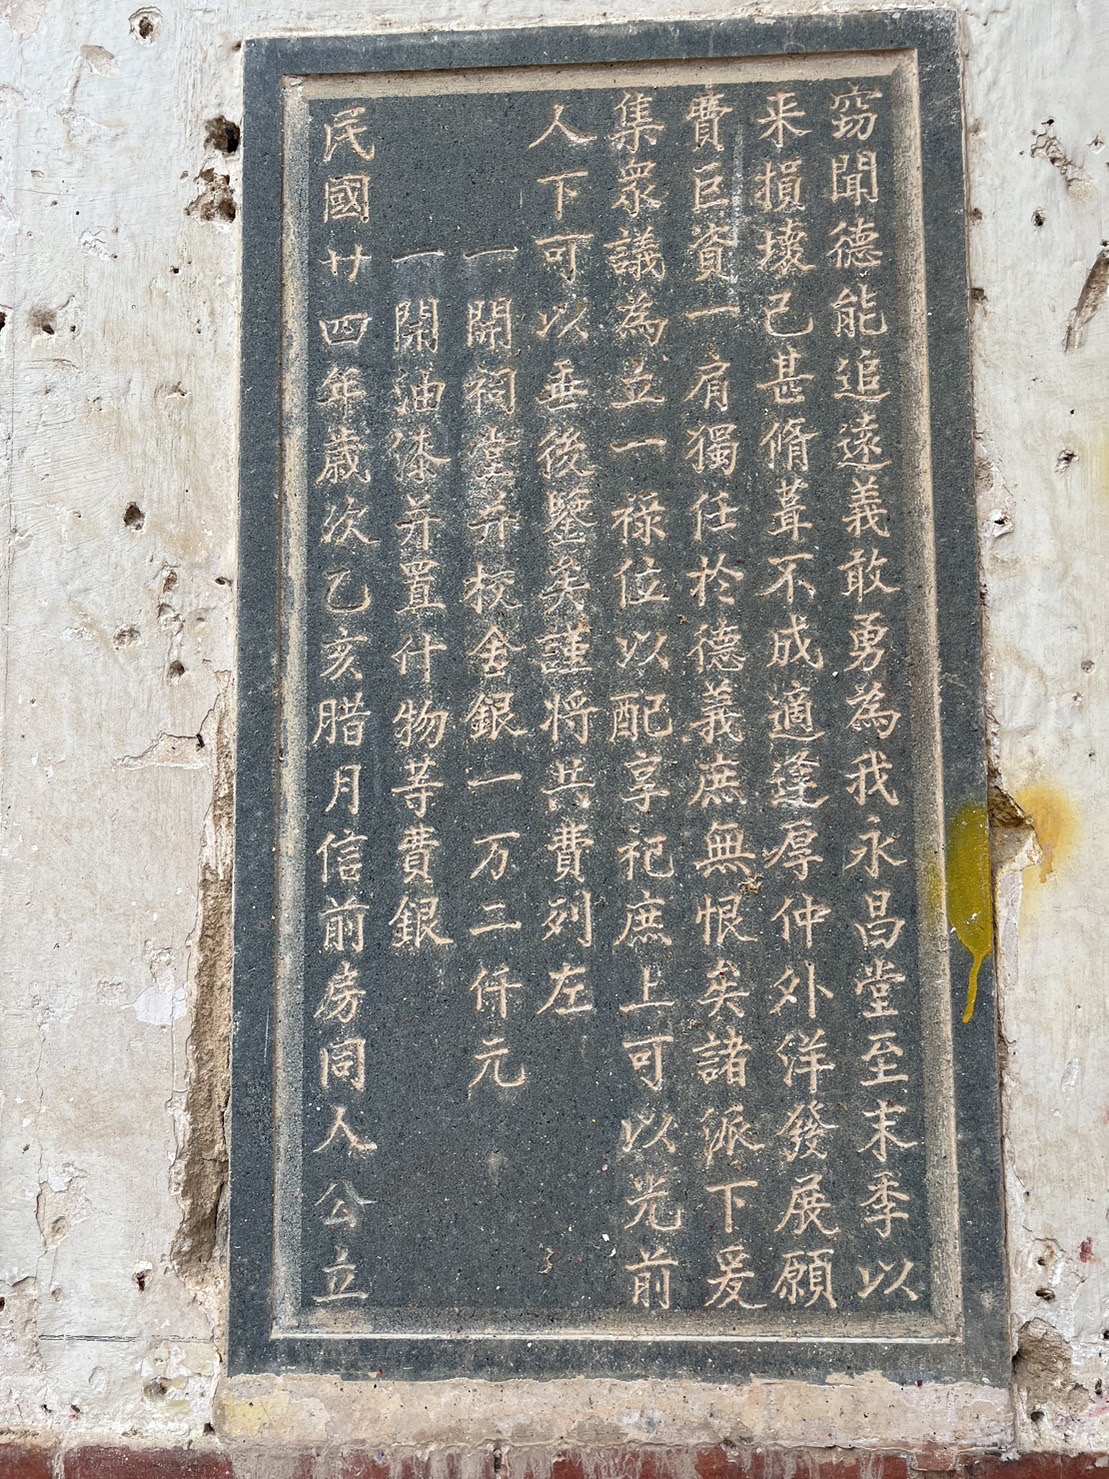 窃聞德能追遠義敢勇為我永昌堂至末季以
来損壞已甚脩葺不成適逢厚仲外洋發展願
費巨資一肩獨任於德義庶無恨矣諸派下爰
集衆議為立一祿位以配享祀庶上可以光前
人下可以垂後鑒矣謹将共費列左
一開祠堂并校金銀一万二仟元
一開油漆并置什物等費銀
民國廿四年歲次乙亥腊月信前房同人公立